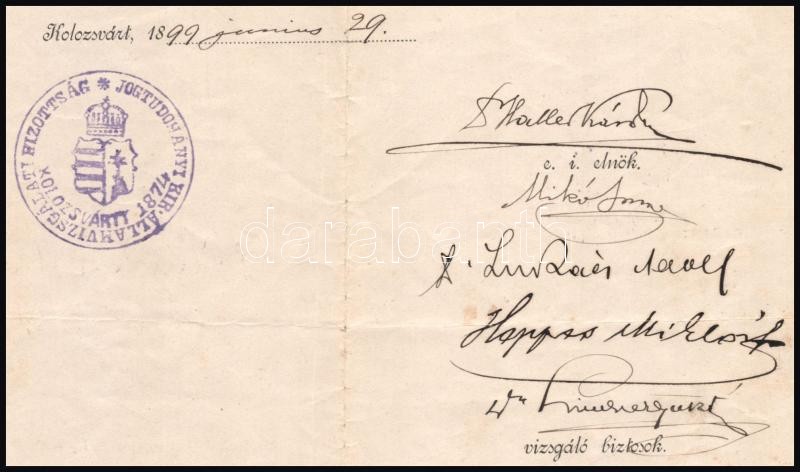 Kolozsvárt, 1899 junius 29.
JOGTUDOMÁNYI KIR. ÁLLAMVIZSGÁLATI BIZOTTSÁG *
KOLOZSVÁRTT 1874
Dr Haller Károly
e. i. elnök.
Mikó Imre
Dr. Lukács Adolf
Happss Miklós
Dr
vizsgáló biztosok.
darabanth